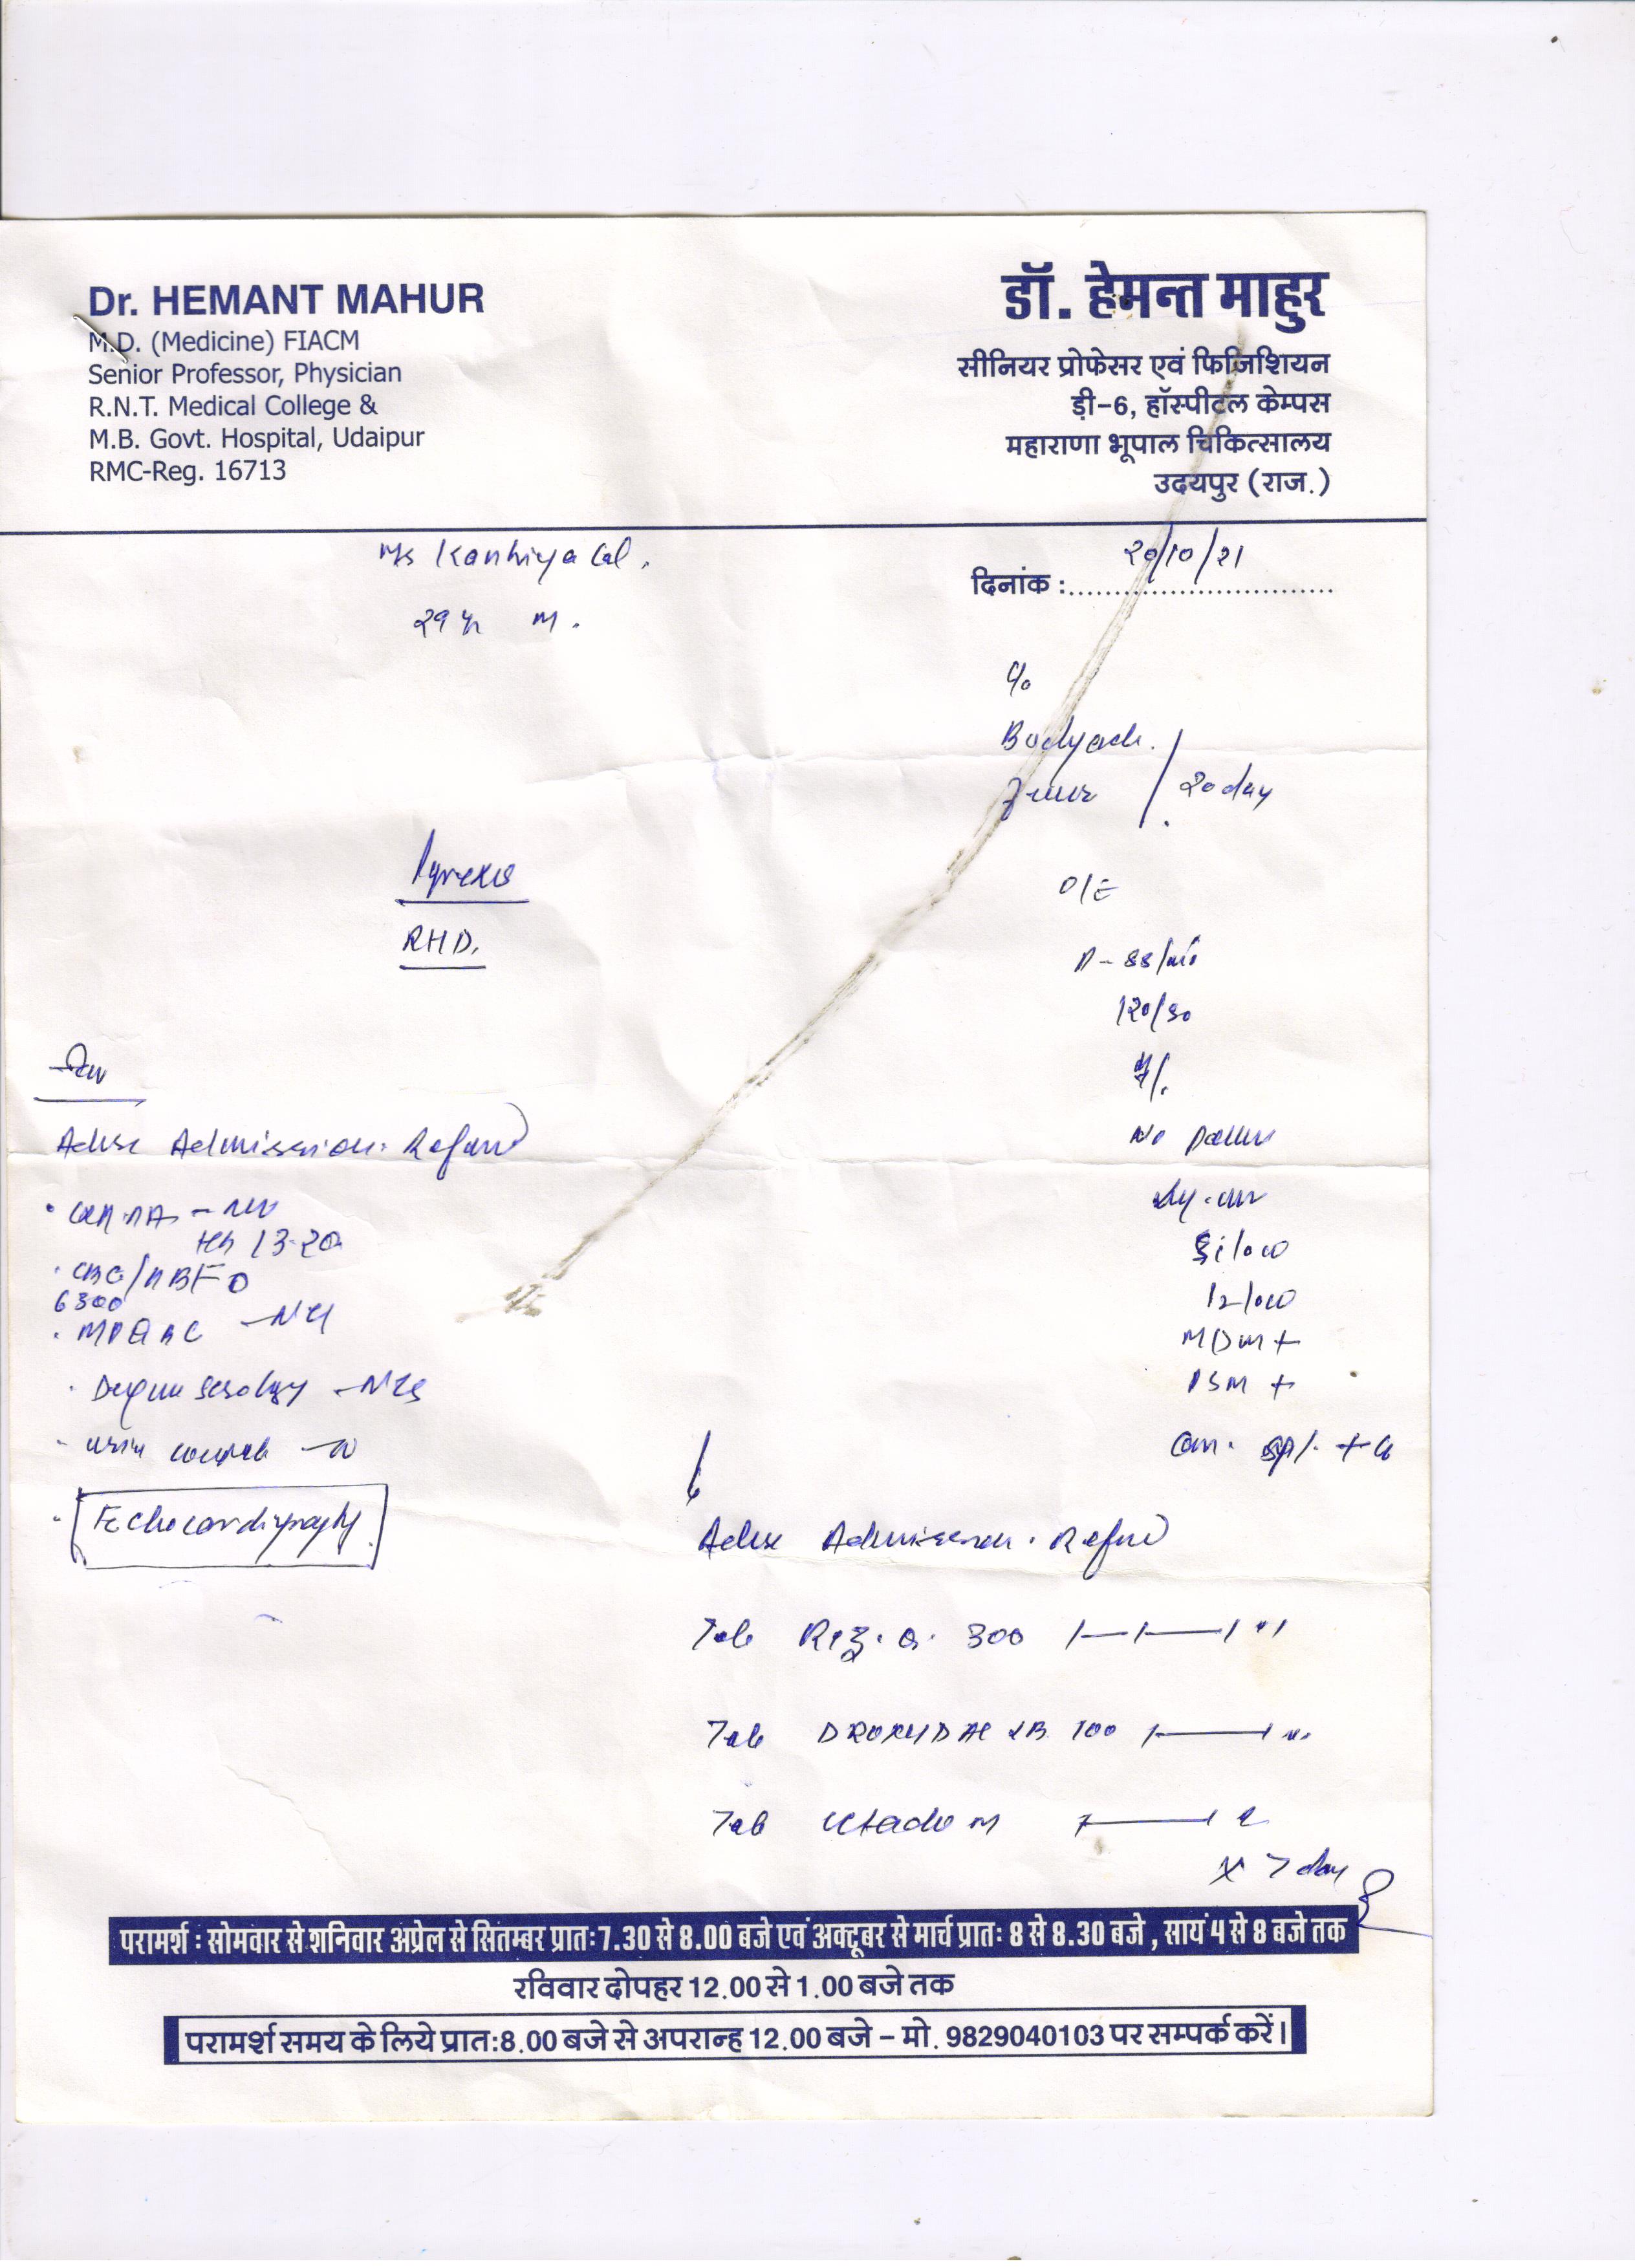 Dr. HEMANT MAHUR
M.D. (Medicine) FIACM
Senior Professor, Physician
R.N.T. Medical College &
M.B. Govt. Hospital, Udaipur
RMC-Reg. 16713
डॉ. हेमन्त माहुर
सीनियर प्रोफेसर एवं फिजिशियन
ड़ी-6, हॉस्पीटल केम्पस
महाराणा भूपाल चिकित्सालय
उदयपुर (राज.)
Kanhiya Lal.
29 yr M.
दिनांक : 20/10/21
C/o
Bodyache.
Fever 20 day
O/E
P - 88/min
120/80
No
MDM +
PSM +
Pyrexia
RHD.
Advise Admission. Refused
Hb 13.20
6300
Dengue serology
Urine complete
Echocardiography
Advise Admission. Refused
Tab 300
Tab DROXYDAC LB 100
Tab
x 7 day
परामर्श : सोमवार से शनिवार अप्रेल से सितम्बर प्रातः 7.30 से 8.00 बजे एवं अक्टूबर से मार्च प्रातः 8 से 8.30 बजे , सायं 4 से 8 बजे तक
रविवार दोपहर 12.00 से 1.00 बजे तक
परामर्श समय के लिये प्रात:8.00 बजे से अपरान्ह 12.00 बजे – मो. 9829040103 पर सम्पर्क करें।